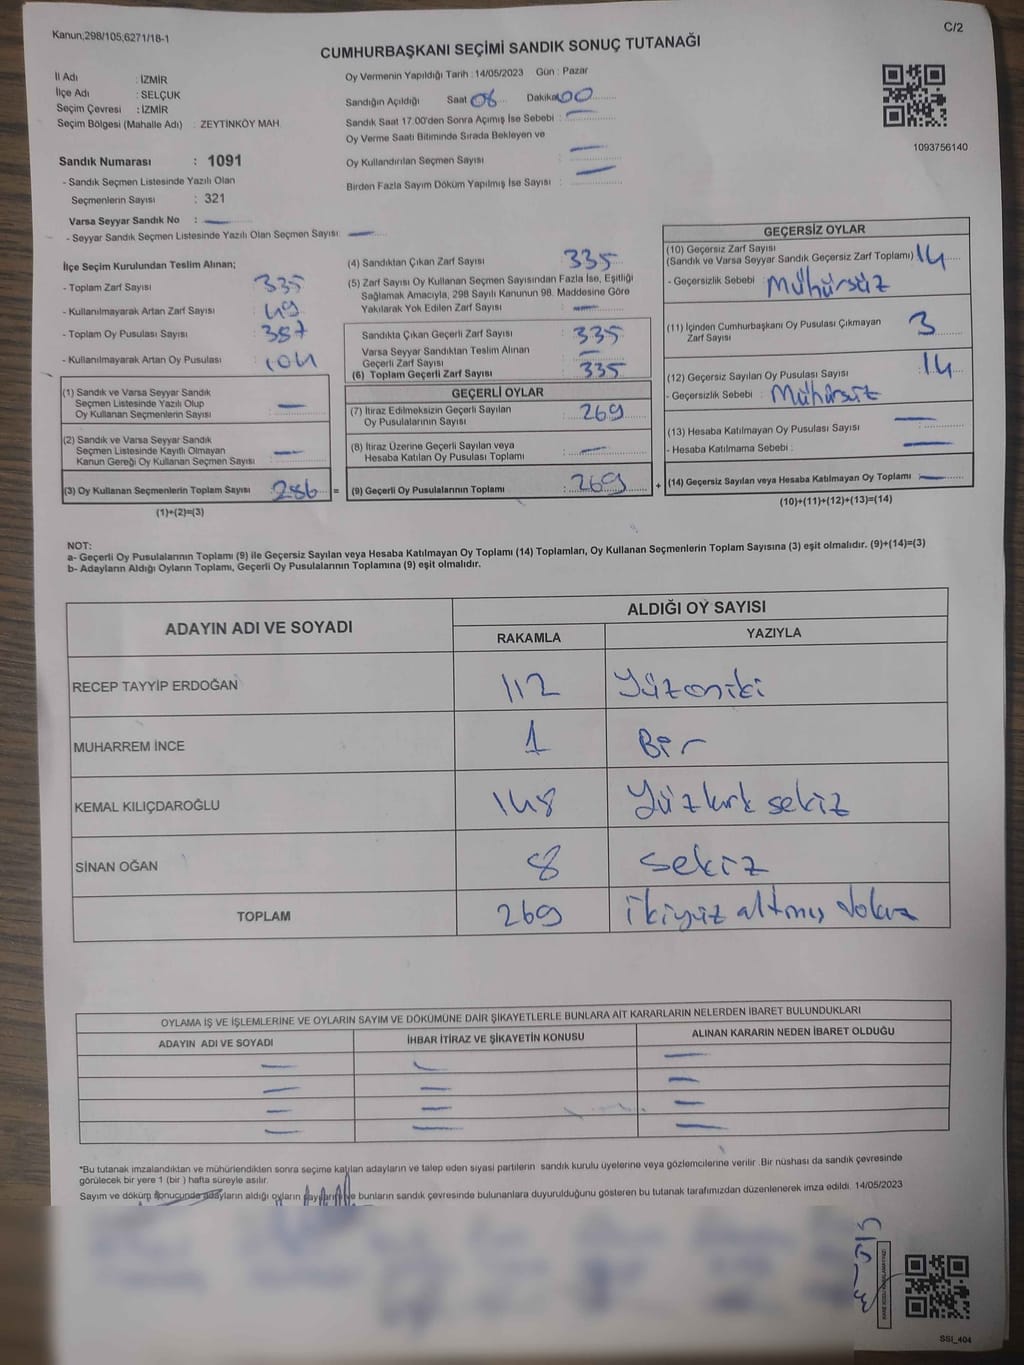 Kanun;298/105,6271/18-1
C/2
CUMHURBAŞKANI SEÇİMİ SANDIK SONUÇ TUTANAĞI
İl Adı : İZMİR
İlçe Adı : SELÇUK
Seçim Çevresi : İZMİR
Seçim Bölgesi (Mahalle Adı) : ZEYTİNKÖY MAH.
Sandık Numarası : 1091
- Sandık Seçmen Listesinde Yazılı Olan
Seçmenlerin Sayısı : 321
Varsa Seyyar Sandık No : —
- Seyyar Sandık Seçmen Listesinde Yazılı Olan Seçmen Sayısı: —
Oy Vermenin Yapıldığı Tarih : 14/05/2023 Gün : Pazar
Sandığın Açıldığı Saat 08 Dakika 00
Sandık Saat 17:00'den Sonra Açımış İse Sebebi : —
Oy Verme Saati Bitiminde Sırada Bekleyen ve
Oy Kullandırılan Seçmen Sayısı : —
Birden Fazla Sayım Döküm Yapılmış İse Sayısı : —
1093756140
İlçe Seçim Kurulundan Teslim Alınan;
- Toplam Zarf Sayısı : 335
- Kullanılmayarak Artan Zarf Sayısı : 49
- Toplam Oy Pusulası Sayısı : 387
- Kullanılmayarak Artan Oy Pusulası : 104
(1) Sandık ve Varsa Seyyar Sandık
Seçmen Listesinde Yazılı Olup
Oy Kullanan Seçmenlerin Sayısı : —
(2) Sandık ve Varsa Seyyar Sandık
Seçmen Listesinde Kayıtlı Olmayan
Kanun Gereği Oy Kullanan Seçmen Sayısı : —
(3) Oy Kullanan Seçmenlerin Toplam Sayısı : 286 =
(1)+(2)=(3)
(4) Sandıktan Çıkan Zarf Sayısı : 335
(5) Zarf Sayısı Oy Kullanan Seçmen Sayısından Fazla İse, Eşitliği
Sağlamak Amacıyla, 298 Sayılı Kanunun 98. Maddesine Göre
Yakılarak Yok Edilen Zarf Sayısı : —
Sandıkta Çıkan Geçerli Zarf Sayısı : 335
Varsa Seyyar Sandıktan Teslim Alınan
Geçerli Zarf Sayısı : —
(6) Toplam Geçerli Zarf Sayısı : 335
GEÇERLİ OYLAR
(7) İtiraz Edilmeksizin Geçerli Sayılan
Oy Pusulalarının Sayısı : 269
(8) İtiraz Üzerine Geçerli Sayılan veya
Hesaba Katılan Oy Pusulası Toplamı : —
(9) Geçerli Oy Pusulalarının Toplamı : 269 +
GEÇERSİZ OYLAR
(10) Geçersiz Zarf Sayısı
(Sandık ve Varsa Seyyar Sandık Geçersiz Zarf Toplamı) 14
- Geçersizlik Sebebi : Mühürsüz
(11) İçinden Cumhurbaşkanı Oy Pusulası Çıkmayan
Zarf Sayısı 3
(12) Geçersiz Sayılan Oy Pusulası Sayısı : 14
- Geçersizlik Sebebi : Mühürsüz
(13) Hesaba Katılmayan Oy Pusulası Sayısı : —
- Hesaba Katılmama Sebebi : —
(14) Geçersiz Sayılan veya Hesaba Katılmayan Oy Toplamı : —
(10)+(11)+(12)+(13)=(14)
NOT:
a- Geçerli Oy Pusulalarının Toplamı (9) ile Geçersiz Sayılan veya Hesaba Katılmayan Oy Toplamı (14) Toplamları, Oy Kullanan Seçmenlerin Toplam Sayısına (3) eşit olmalıdır. (9)+(14)=(3)
b- Adayların Aldığı Oyların Toplamı, Geçerli Oy Pusulalarının Toplamına (9) eşit olmalıdır.
ADAYIN ADI VE SOYADI
ALDIĞI OY SAYISI
RAKAMLA YAZIYLA
RECEP TAYYİP ERDOĞAN 112 Yüzoniki
MUHARREM İNCE 1 Bir
KEMAL KILIÇDAROĞLU 148 Yüzkırk sekiz
SİNAN OĞAN 8 sekiz
TOPLAM 269 ikiyüz altmış dokuz
OYLAMA İŞ VE İŞLEMLERİNE VE OYLARIN SAYIM VE DÖKÜMÜNE DAİR ŞİKAYETLERLE BUNLARA AİT KARARLARIN NELERDEN İBARET BULUNDUKLARI
ADAYIN ADI VE SOYADI İHBAR İTİRAZ VE ŞİKAYETİN KONUSU ALINAN KARARIN NEDEN İBARET OLDUĞU
— — —
— — —
— — —
— — —
*Bu tutanak imzalandıktan ve mühürlendikten sonra seçime katılan adayların ve talep eden siyasi partilerin sandık kurulu üyelerine veya gözlemcilerine verilir .Bir nüshası da sandık çevresinde
görülecek bir yere 1 (bir ) hafta süreyle asılır.
Sayım ve döküm sonucunda adayların aldığı oyların sayılarını ve bunların sandık çevresinde bulunanlara duyurulduğunu gösteren bu tutanak tarafımızdan düzenlenerek imza edildi. 14/05/2023
SSI_404